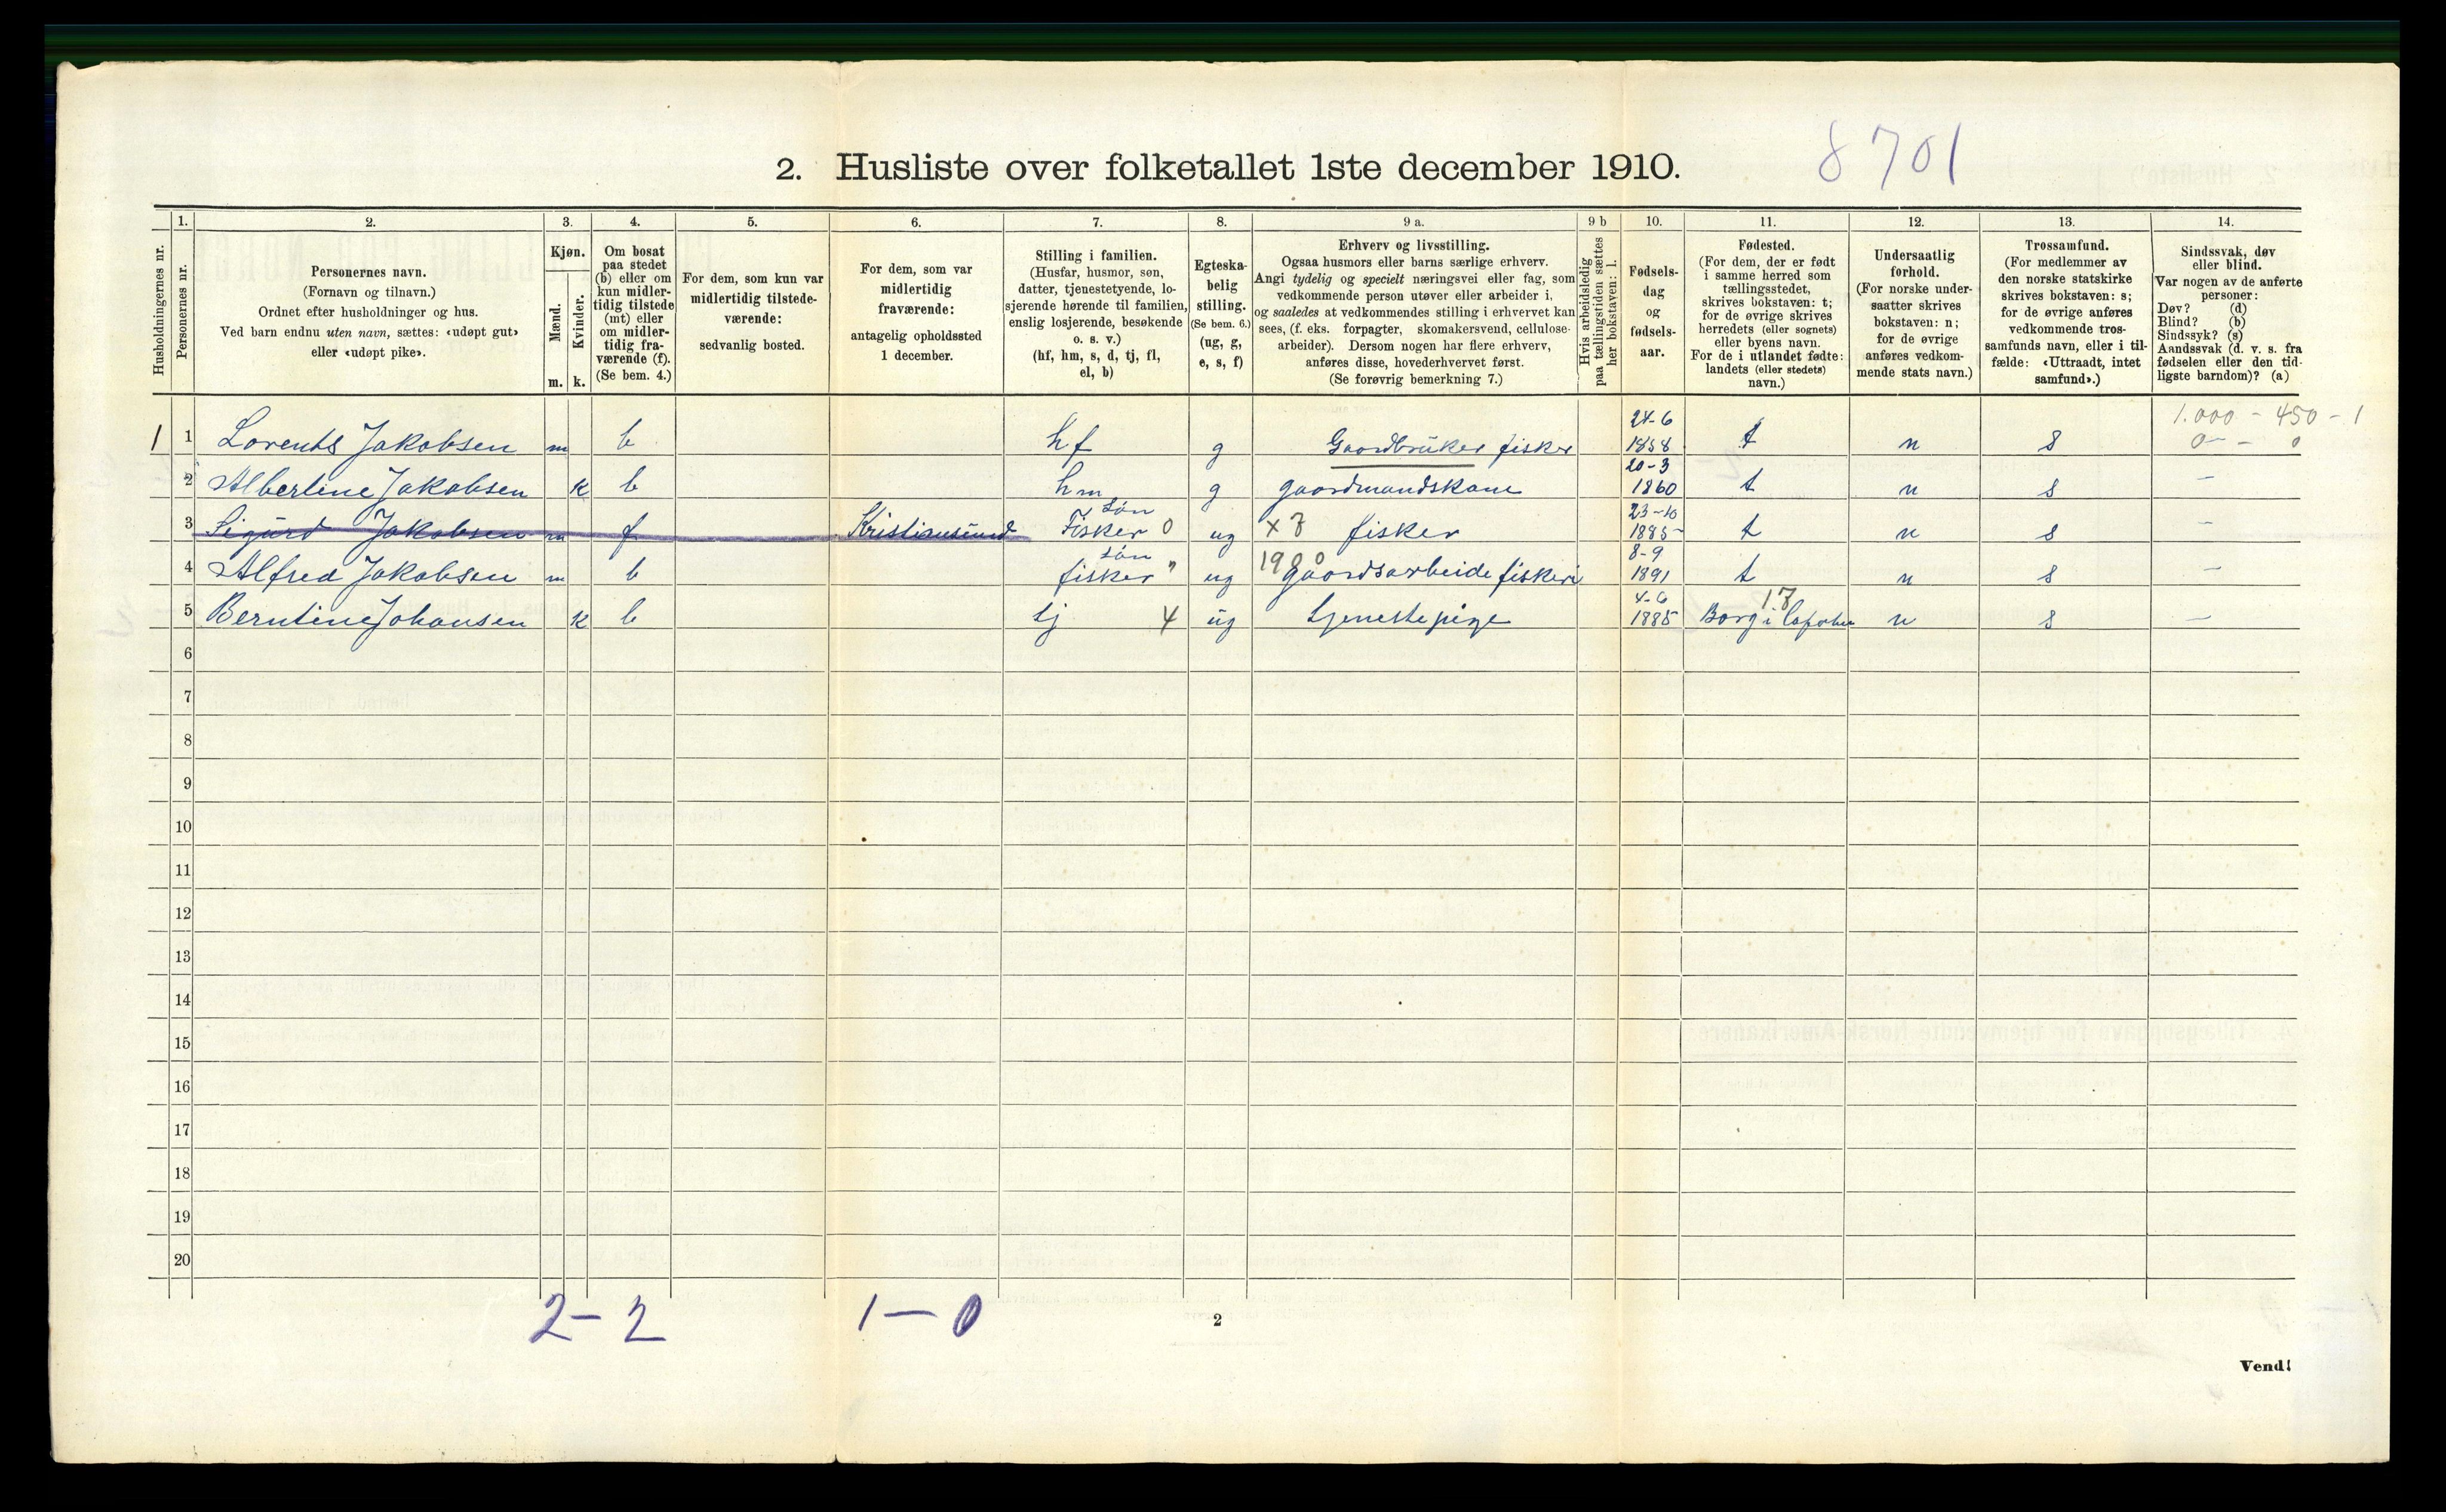 8701
2. Husliste over folketallet 1ste december 1910.
Husholdningernes nr.
1.
Personernes nr.
2.
Personernes navn.
(Fornavn og tilnavn.)
Ordnet efter husholdninger og hus.
Ved barn endnu uten navn, sættes: «udøpt gut»
eller «udøpt pike».
3.
Kjøn.
Mænd.
Kvinder.
m. k.
4.
Om bosat
paa stedet
(b) eller om
kun midler-
tidig tilstede
(mt) eller
om midler-
tidig fra-
værende (f).
(Se bem. 4.)
5.
For dem, som kun var
midlertidig tilstede-
værende:
sedvanlig bosted.
6.
For dem, som var
midlertidig
fraværende:
antagelig opholdssted
1 december.
7.
Stilling i familien.
(Husfar, husmor, søn,
datter, tjenestetyende, lo-
sjerende hørende til familien,
enslig losjerende, besøkende
o. s. v.)
(hf, hm, s, d, tj, fl,
el, b)
8.
Egteska-
belig
stilling.
(Se bem. 6.)
(ug, g,
e, s, f)
9 a.
Erhverv og livsstilling.
Ogsaa husmors eller barns særlige erhverv.
Angi tydelig og specielt næringsvei eller fag, som
vedkommende person utøver eller arbeider i,
og saaledes at vedkommendes stilling i erhvervet kan
sees, (f. eks. forpagter, skomakersvend, cellulose-
arbeider). Dersom nogen har flere erhverv,
anføres disse, hovederhvervet først.
(Se forøvrig bemerkning 7.)
9 b
Hvis arbeidsledig
paa tællingstiden sættes
her bokstaven: l.
10.
Fødsels-
dag
og
fødsels-
aar.
11.
Fødested.
(For dem, der er født
i samme herred som
tællingsstedet,
skrives bokstaven: t;
for de øvrige skrives
herredets (eller sognets)
eller byens navn.
For de i utlandet fødte:
landets (eller stedets)
navn.)
12.
Undersaatlig
forhold.
(For norske under-
saatter skrives
bokstaven: n;
for de øvrige
anføres vedkom-
mende stats navn.)
13.
Trossamfund.
(For medlemmer av
den norske statskirke
skrives bokstaven: s;
for de øvrige anføres
vedkommende tros-
samfunds navn, eller i til-
fælde: «Uttraadt, intet
samfund».)
14.
Sindssvak, døv
eller blind.
Var nogen av de anførte
personer:
Døv? (d)
Blind? (b)
Sindssyk? (s)
Aandssvak (d. v. s. fra
fødselen eller den tid-
ligste barndom)? (a)
1.000 - 450 - 1
1 1 Lorents Jakobsen m b hf g Gaardbruker fisker 24-6 1858 t n s 0 - - 0
2 Albertine Jakobsen k b hm g gaardmandskone 20-3 1860 t n s -
3 Sigurd Jakobsen m f Kristiansund søn Fisker 0 ug x7 fisker 23-10 1885 t n s -
4 Alfred Jakobsen m b søn fisker " ug gaardsarbeide fiskeri 8-9 1891 t n s -
5 Berntine Johansen k b tj 4 ug tjenestepige 4-6 1885 Borg i Lofoten 17 n s -
6
7
8
9
10
11
12
13
14
15
16
17
18
19
20
2 - 2 1 - 0
2
Vend!